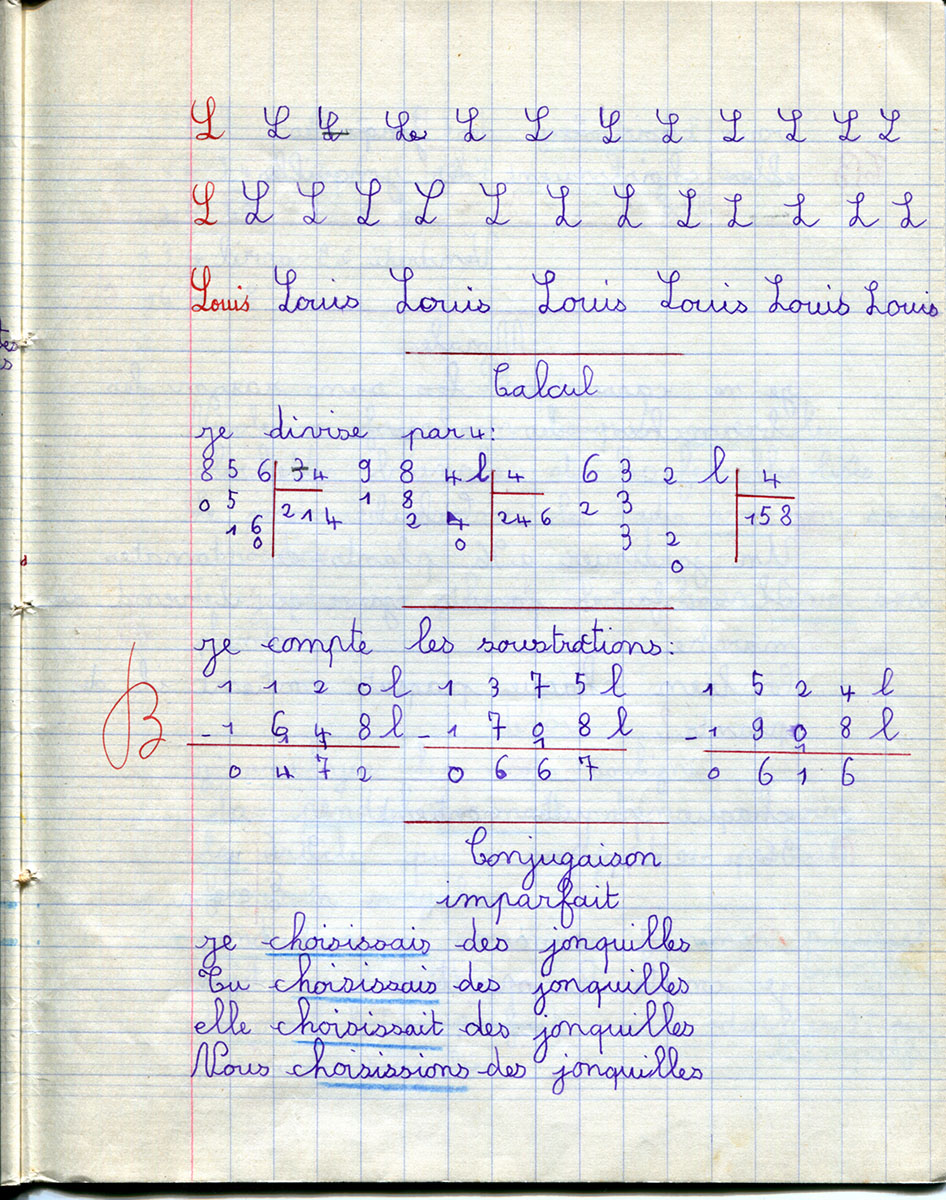 L L L Le L L L L L L L L
L L L L L L L L L L L L L
Louis Louis Louis Louis Louis Louis Louis
Calcul
je divise par 4:
8 5 6 34 9 8 4 l 4 6 3 2 l 4
0 5 214 1 8 246 2 3 158
1 6 2 4 3 2
0 0 0
je compte les soustractions:
1 1 2 0 l 1 3 7 5 l 1 5 2 4 l
B - 1 6 4 8 l - 1 7 0 8 l - 1 9 0 8 l
1 1 1 1
0 4 7 2 0 6 6 7 0 6 1 6
Conjugaison
imparfait
je choisissais des jonquilles
Tu choisissais des jonquilles
elle choisissait des jonquilles
Nous choisissions des jonquilles